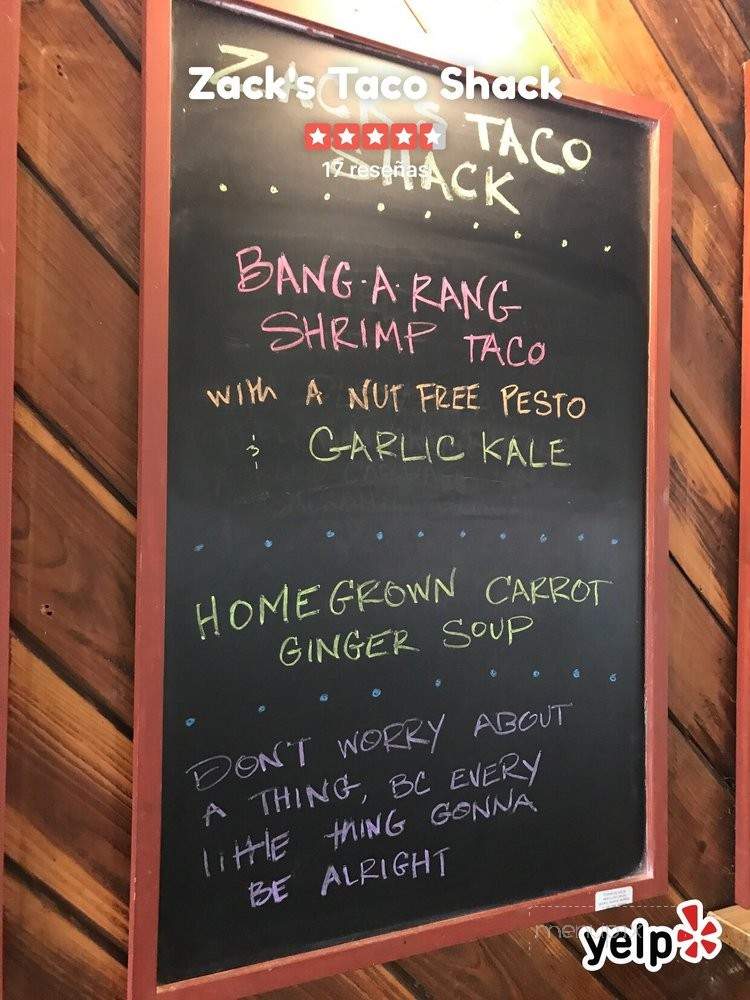 Zack's Taco Shack
17 reseñas
ZACK'S TACO
SHACK
BANG·A·RANG
SHRIMP TACO
WITH A NUT FREE PESTO
& GARLIC KALE
HOMEGROWN CARROT
GINGER SOUP
DON'T WORRY ABOUT
A THING, BC EVERY
LITTLE THING GONNA
BE ALRIGHT
yelp